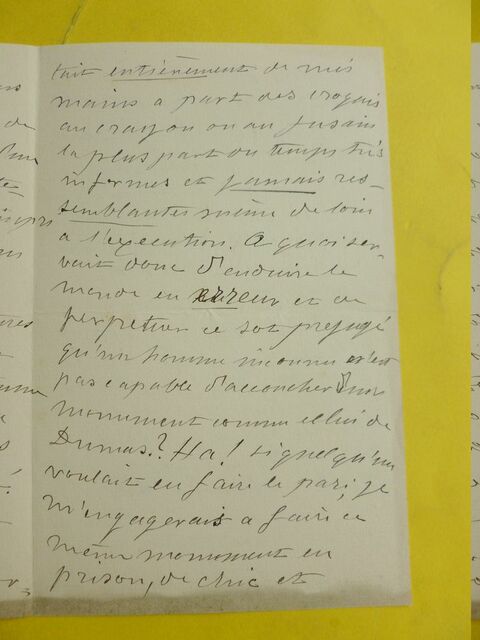 fait entièrement de mes
mains a part des croquis
au crayon ou au fusain
la plus part du temps très
informes et jamais res-
semblantes même de loin
a l'execution. A quoi ser-
vait donc d'enduire le
monde en erreur et de
perpetuer ce sot préjugé
qu'un homme inconnu n'est
pas capable d'accoucher d'un
monument comme cellui de
Dumas? Ha! si quelqu'un
voulait en faire le pari, je
m'engagerais a faire ce
même monument en
prison, de chic et